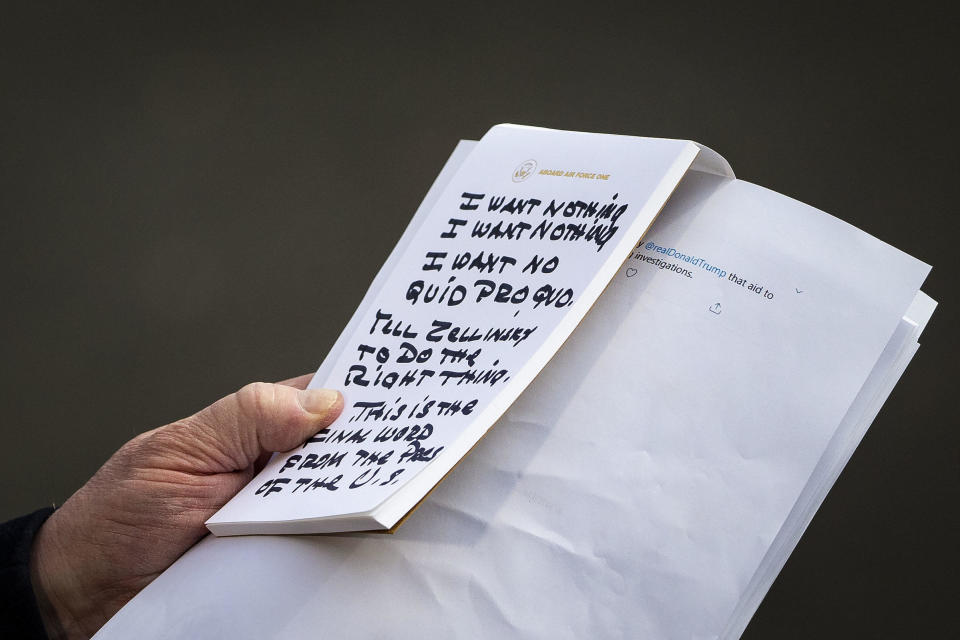 ABOARD AIR FORCE ONE
I WANT NOTHING
I WANT NOTHING
I WANT NO
QUID PRO QUO.
TELL ZELLINSKY
TO DO THE
RIGHT THING.
THIS IS THE
FINAL WORD
FROM THE PRES
OF THE U.S.
y @realDonaldTrump that aid to
investigations.